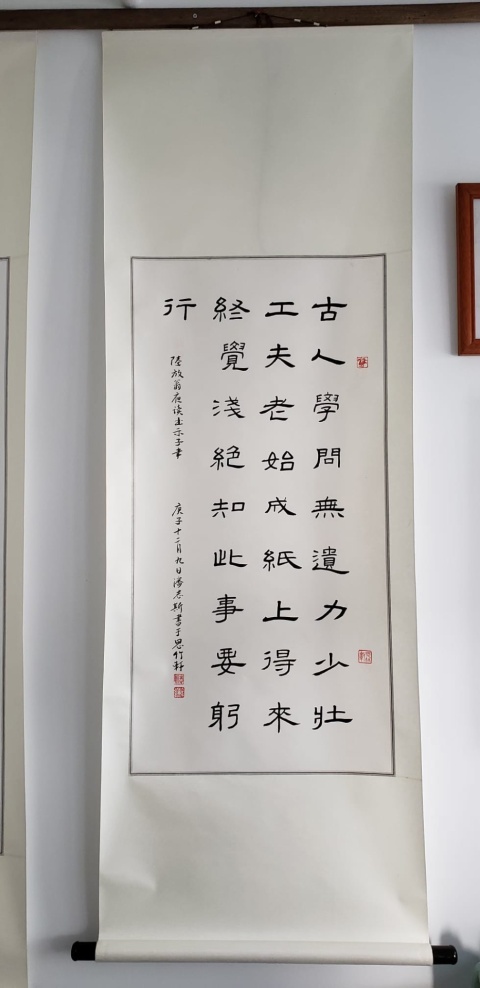 古人學問無遺力少壯
工夫老始成紙上得來
終覺淺絕知此事要躬
行
陸放翁夜讀書示子聿
庚子十二月九日潘志斯書于思竹軒